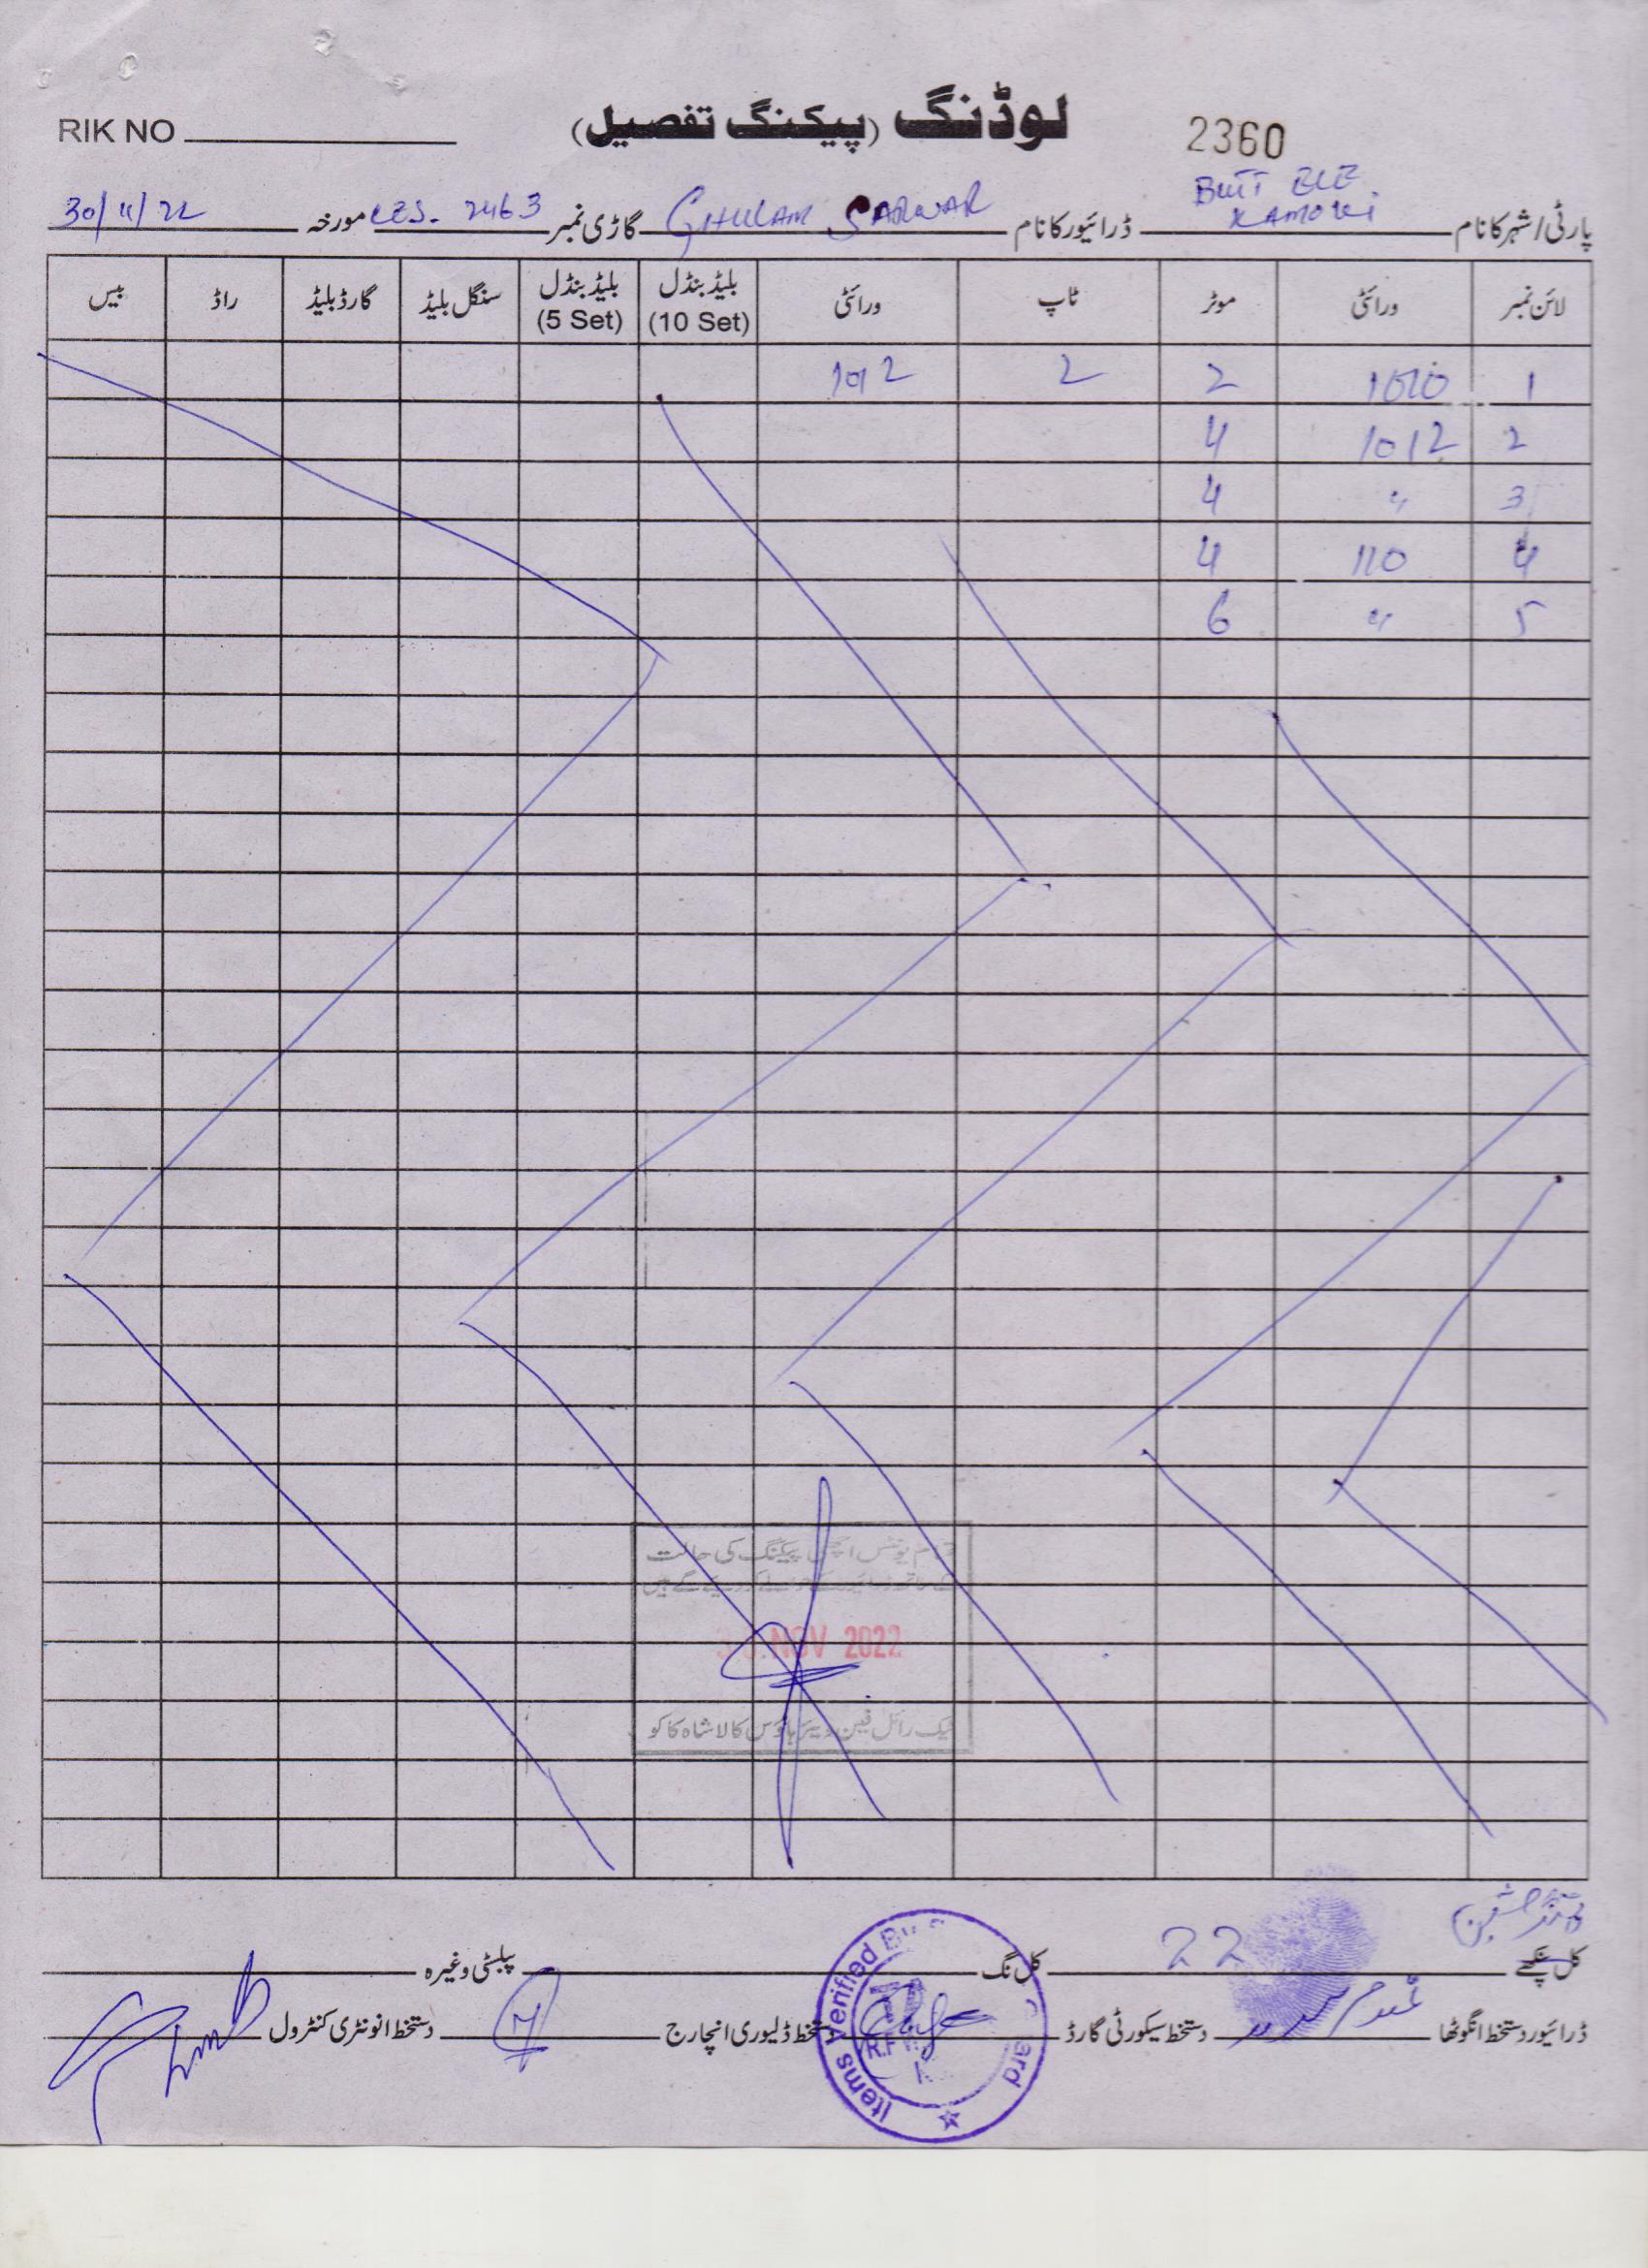 لوڈنگ (پیکنگ تفصیل)
RIK NO
2360
پارٹی/شہر کا نام BUTT ELE KAMOKI ڈرائیور کا نام GHULAM SARWAR گاڑی نمبر LES. 2463 مورخہ 30/11/22
لائن نمبر ورائٹی موٹر ٹاپ ورائٹی بلیڈ بنڈل (10 Set) بلیڈ بنڈل (5 Set) سنگل بلیڈ گارڈ بلیڈ راڈ بیس
1 1010 2 2 1012
2 1012 4
3 " 4
4 110 4
5 " 6
پیکنگ کی حالت
NOV 2022
رائل فین ویئر ہاؤس کالا شاہ کاکو
کل پنکھے 22 کل نگ پبلسٹی وغیرہ
ڈرائیور دستخط انگوٹھا غلام سرور دستخط سیکورٹی گارڈ دستخط ڈلیوری انچارج دستخط انونٹری کنٹرول
Items Verified By